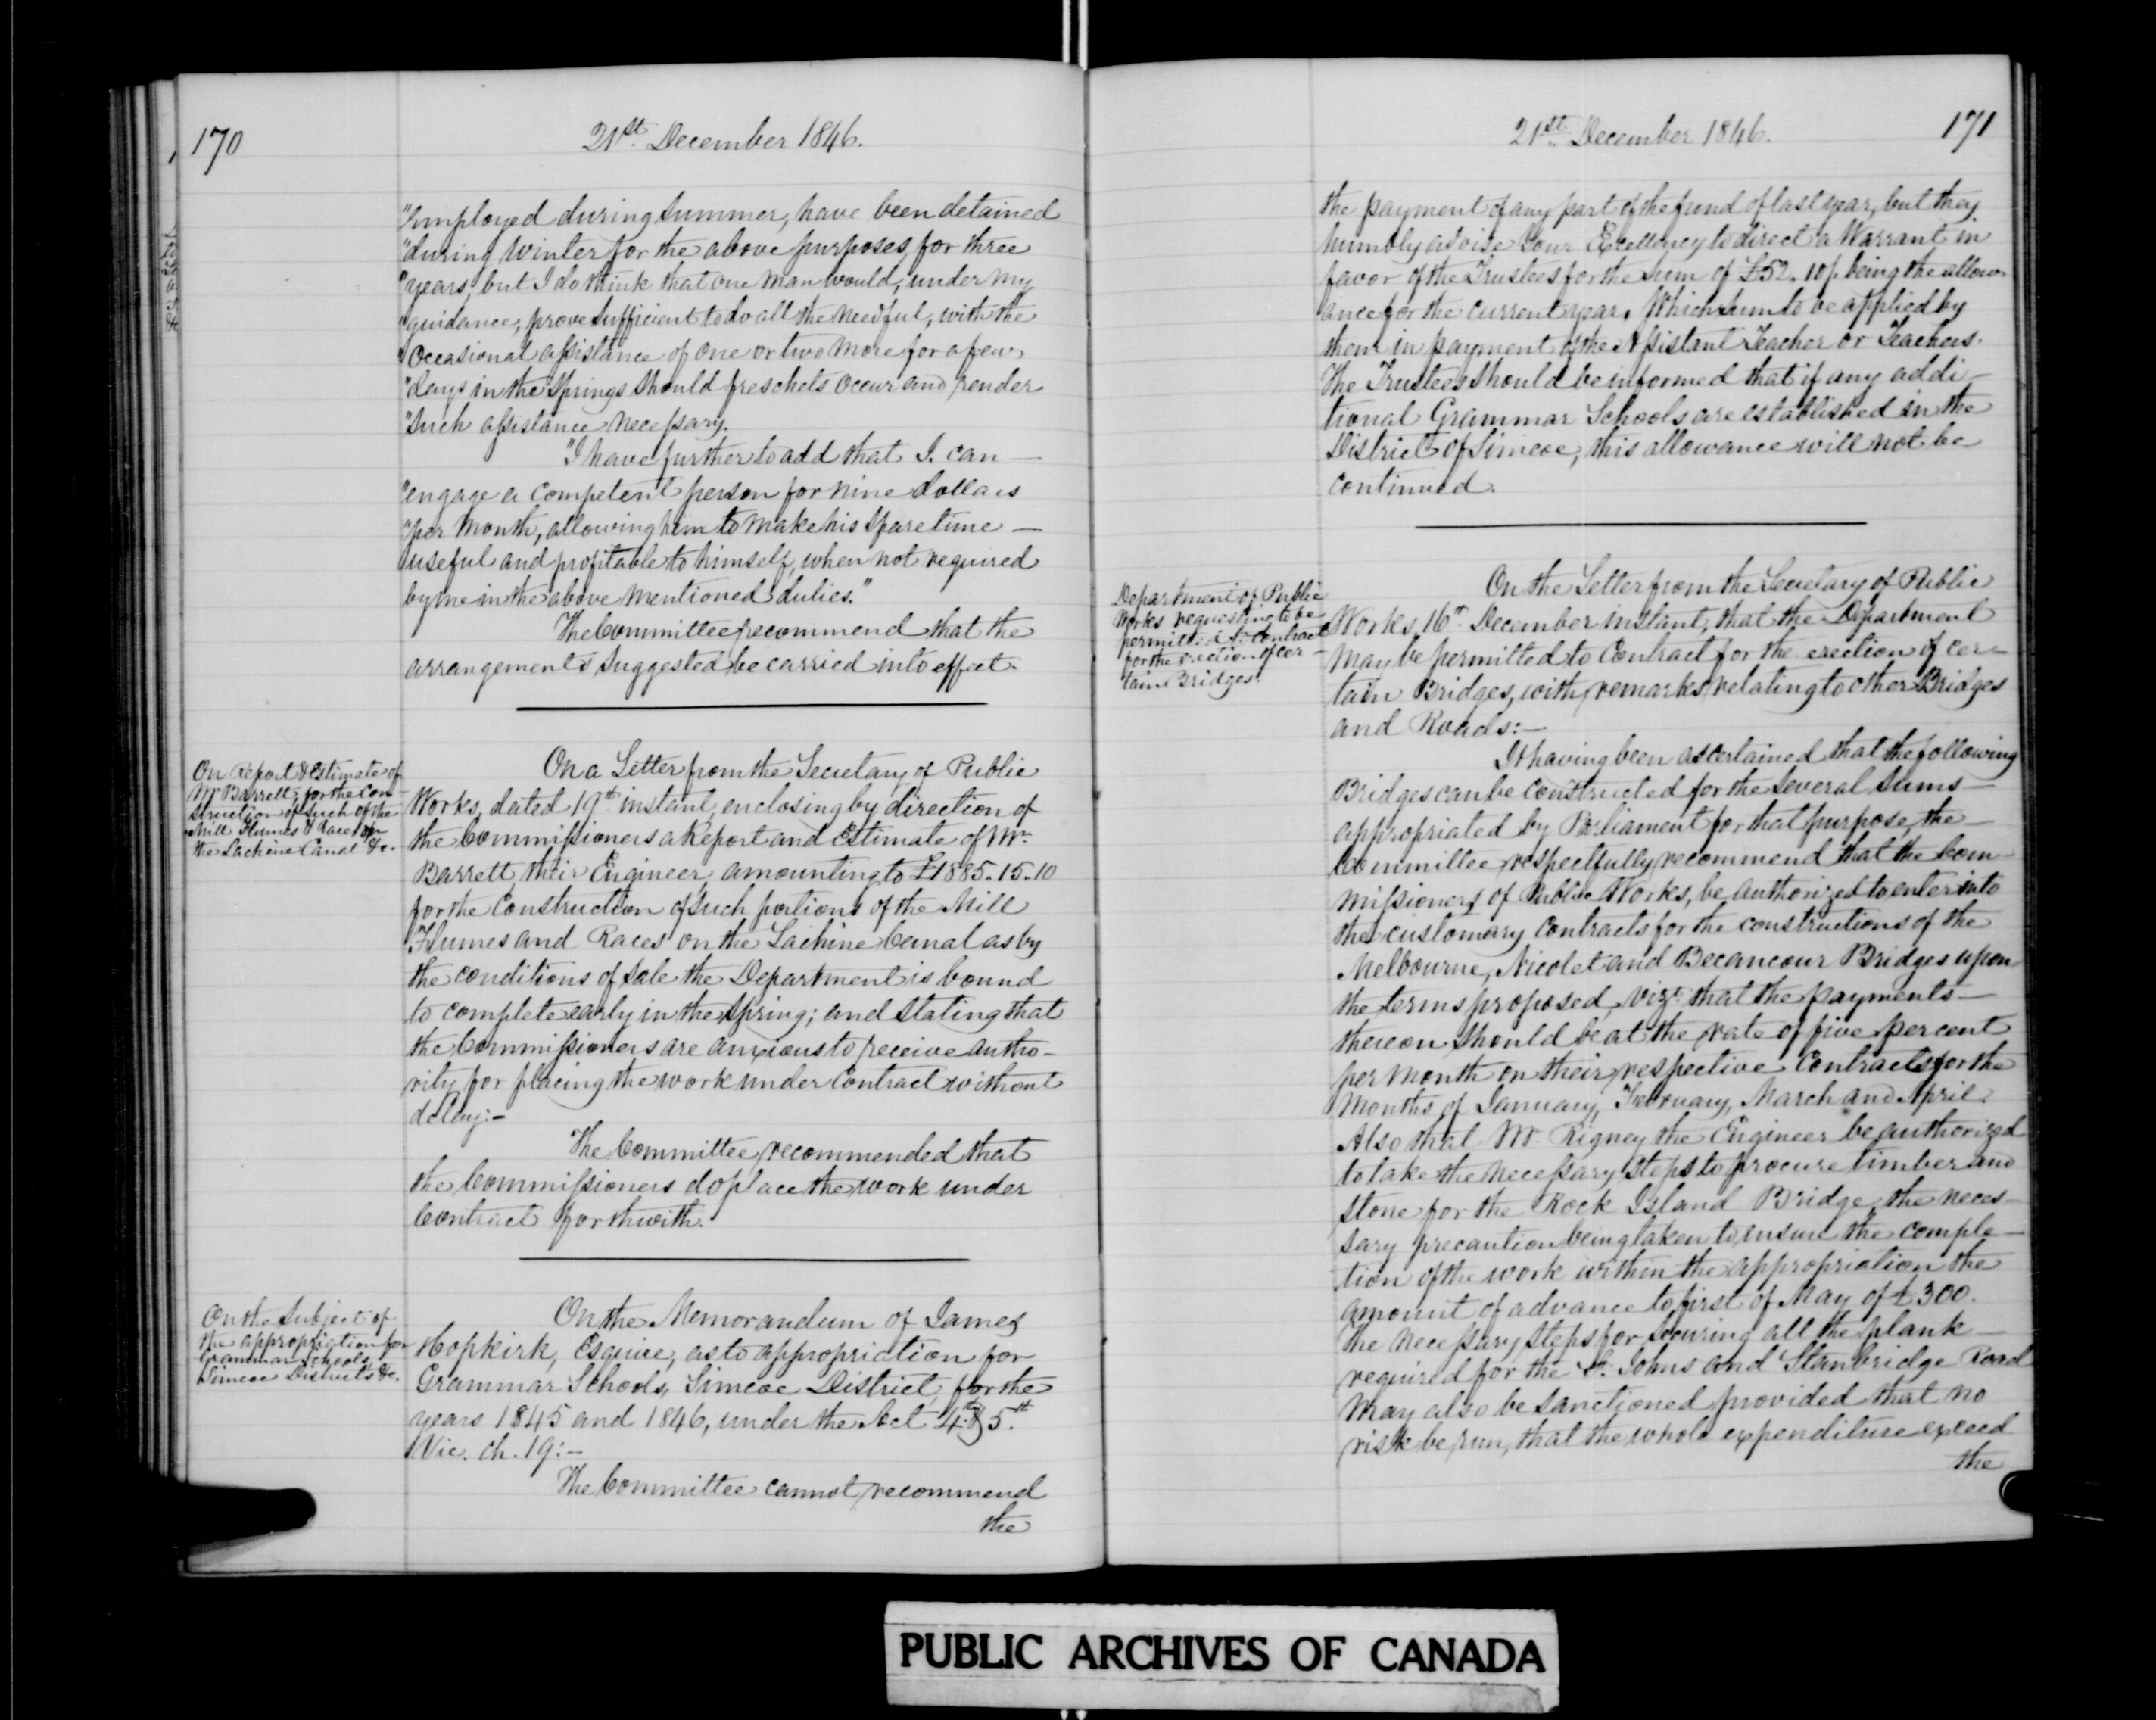 170
21st. December 1846.
"employed during Summer, have been detained
"during Winter for the above purposes, for three
"years, but I do think that one Man would, under my
"guidance, prove sufficient to do all the needful, with the
"Occasional assistance of one or two More for a few
"days in the Spring, should freschets occur and render
"Such assistance necessary.
"I have further to add that I. can —
"engage a Competent person for nine dollars
"per Month, allowing him to Make his Spare time —
"useful and profitable to himself, when not required
by me in the above Mentioned duties."
The Committee recommend that the
arrangements Suggested be carried into effect.
On Report & Estimate of
Mr. Barrett, for the Con-
struction of such of the
Mill Flumes & Races on
the Lachine Canal &c.
On a Letter from the Secretary of Public
Works, dated 19th instant, enclosing by direction of
the Commissioners a Report and Estimate of Mr.
Barrett, their Engineer, amounting to £1885.15.10
for the Construction of such portions of the Mill
Flumes and Races on the Lachine Canal as by
the conditions of Sale the Department is bound
to complete early in the Spring; and Stating that
the Commissioners are anxious to receive autho-
rity for placing the work under Contract without
delay:-
The Committee recommended that
the Commissioners do place the work under
Contract forthwith.
On the Subject of
the appropriation for
Grammar Schools,
Simcoe Districts &c.
On the Memorandum of James
Hopkirk, Esquire, as to appropriation for
Grammar Schools, Simcoe District, for the
years 1845 and 1846, under the Act 4th & 5th
Vic. ch. 19:-
The Committee cannot recommend
the
21st. December 1846.
171
the payment of any part of the fund of last year, but they
humbly advise Your Excellency to direct a Warrant in
favor of the Trustees for the Sum of £52. 10/. being the allow-
ance for the current year. Which Sum to be applied by
them in payment of the Assistant Teacher or Teachers.
The Trustees should be informed that if any addi-
tional Grammar Schools are established in the
District of Simcoe, this allowance will not be
continued.
Department of Public
Works requesting to be
permitted to Contract
for the erection of cer-
tain Bridges.
On the Letter from the Secretary of Public
Works, 16th. December instant, that the Department
May be permitted to Contract for the erection of cer-
tain Bridges, with remarks relating to other Bridges
and Roads:—
It having been ascertained that the following
Bridges can be constructed for the Several Sums —
appropriated by Parliament for that purpose, the —
Committee respectfully recommend that the Com-
missioners of Public Works, be authorized to enter into
the customary Contracts for the constructions of the
Melbourne, Nicolet and Becancour Bridges upon
the terms proposed, vizt. that the payments —
thereon should be at the rate of five per cent
per Month on their respective Contracts for the
Months of January, February, March and April.
Also that Mr. Rigney the Engineer be authorized
to take the necessary steps to procure timber and
stone for the Rock Island Bridge, the neces-
sary precaution being taken to ensure the comple-
tion of the work within the appropriation the
amount of advance to first of May of £300.
The necessary steps for securing all the plank —
required for the St. Johns and Stanbridge Road
May also be sanctioned provided that no
risk be run, that the whole expenditure exceed
the
PUBLIC ARCHIVES OF CANADA